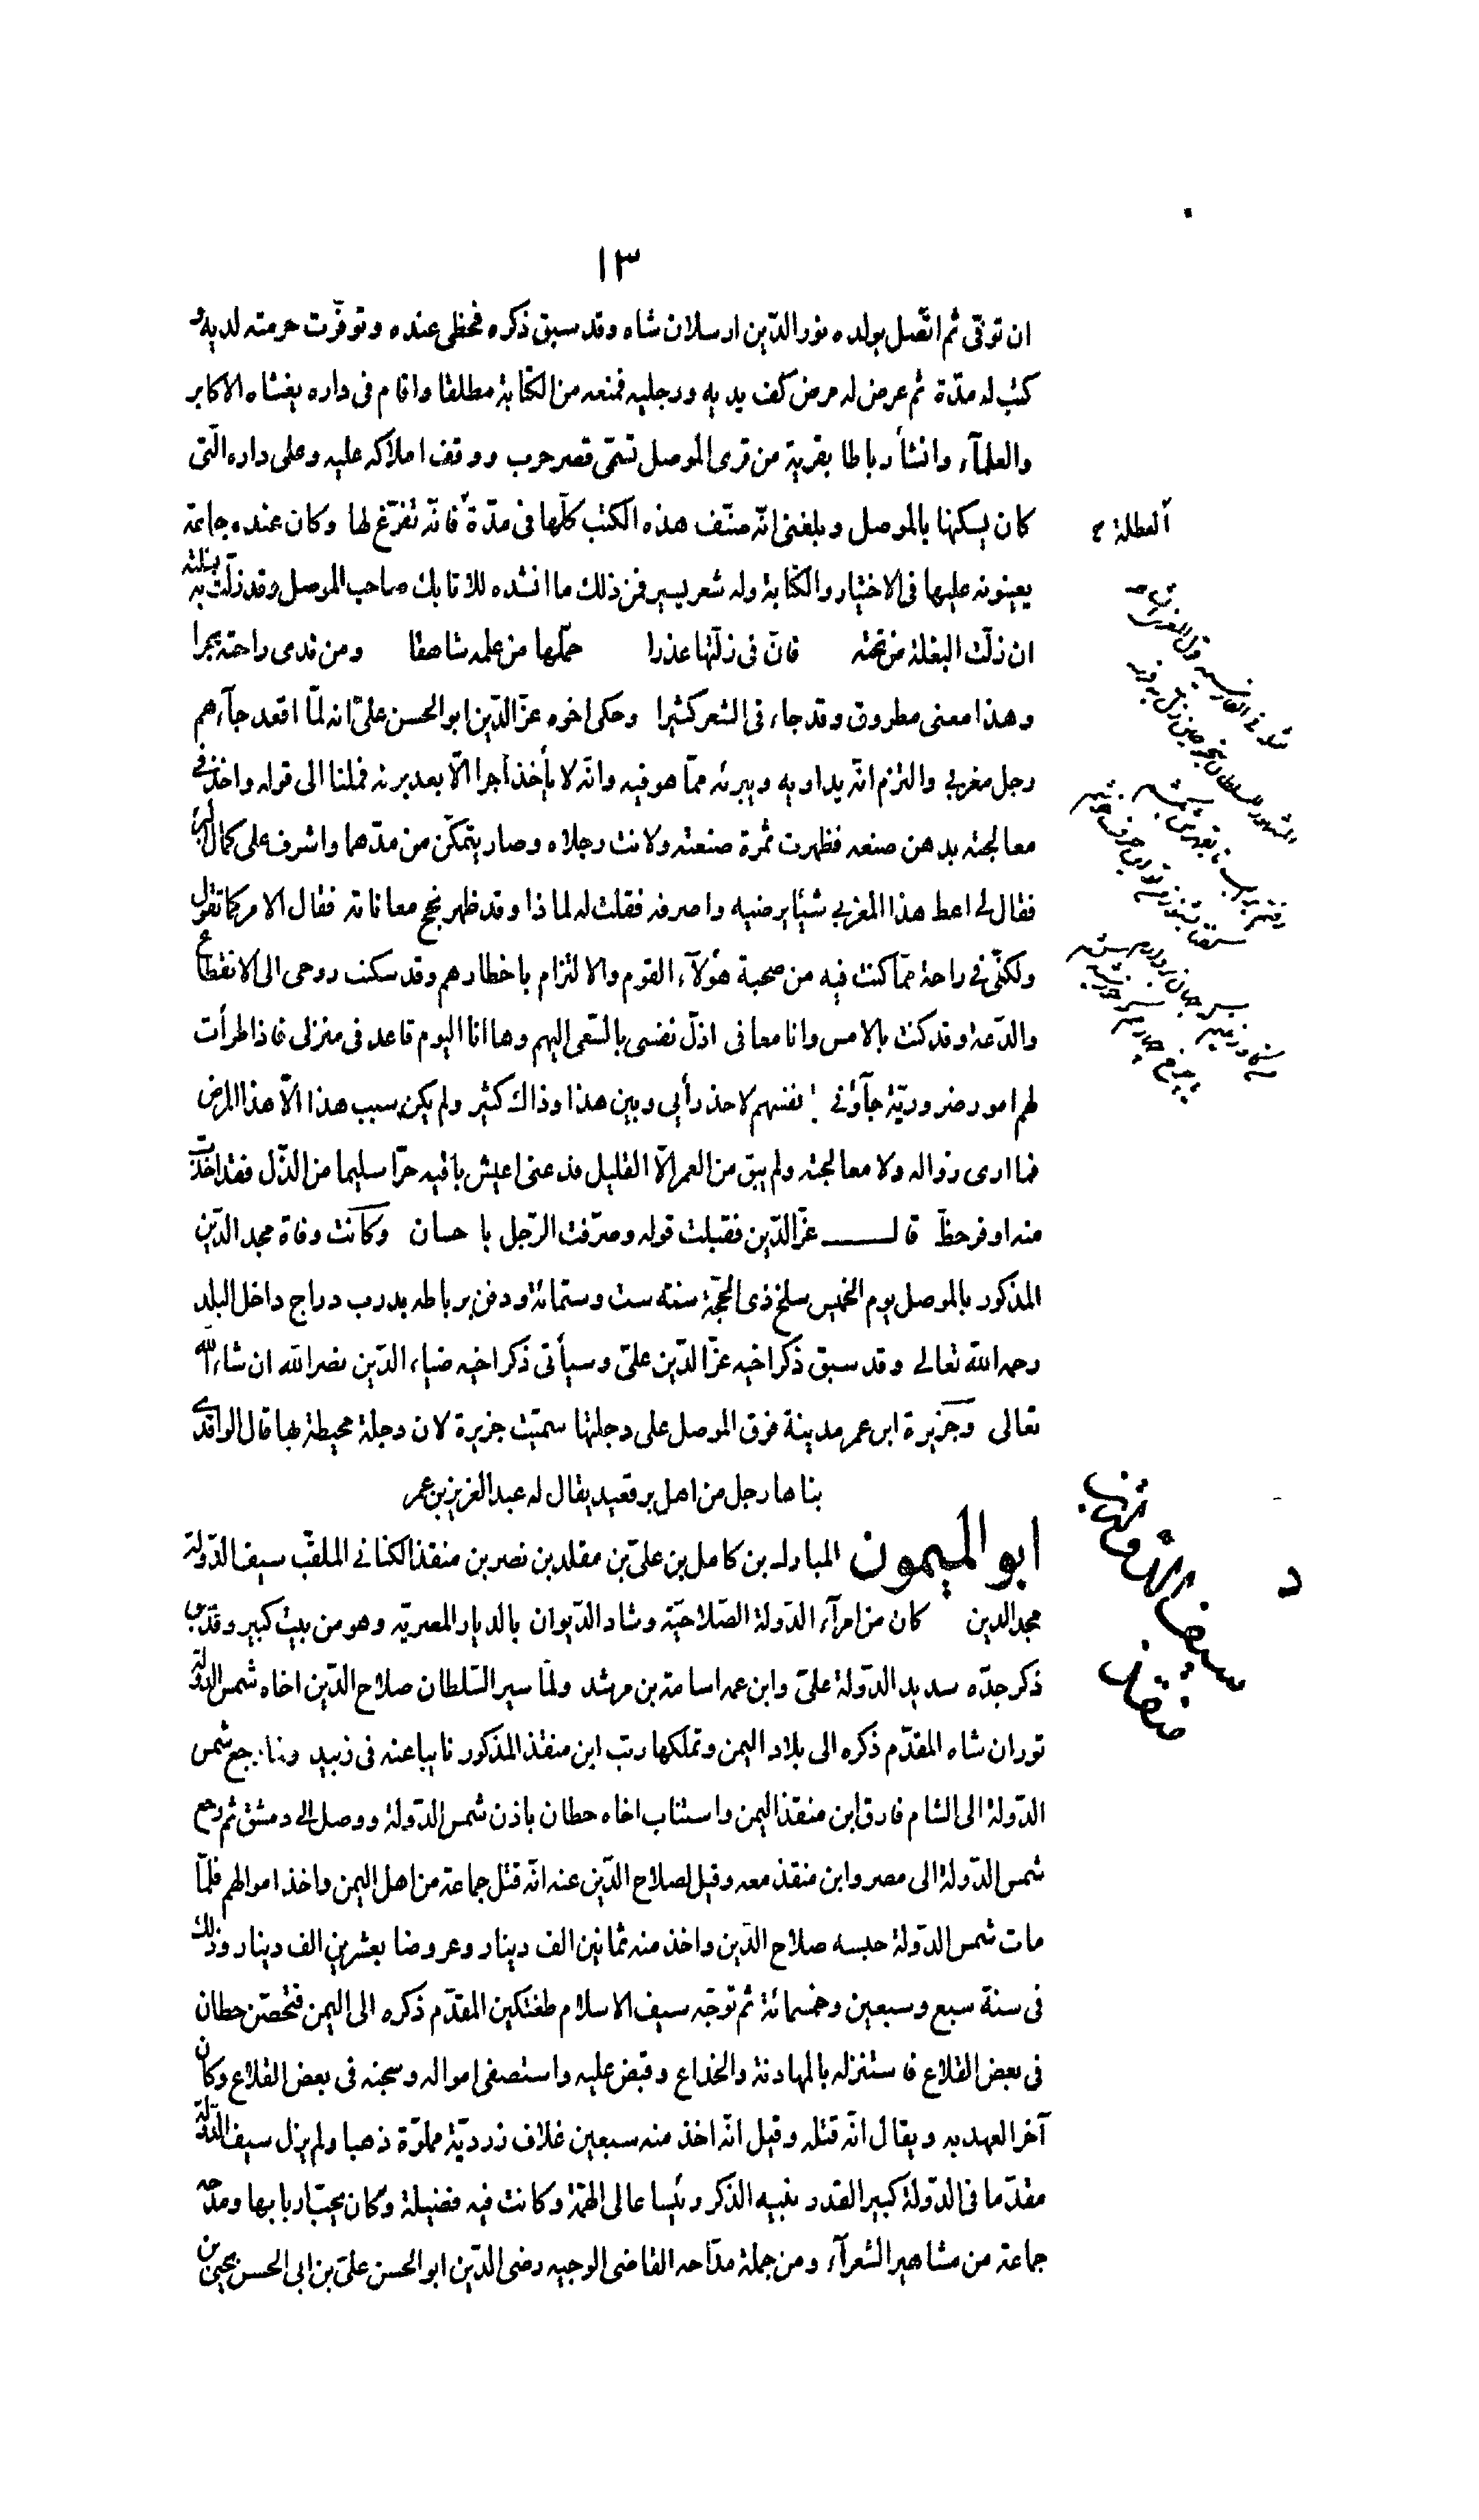 ١٣
ان توفّى ثم اتّصل بولده نور الدّين ارسلان شاه وقد سبق ذكره فحظى عنده وتوفّرت حرمته لديه و
كتب له مدّة ثم عرض له مرض كف يديه ورجليه فمنعه من الكتابة مطلقا واقام فى داره يغشاه الاكابر
والعلمآء وانشأ رباطا بقرية من قرى الموصل تسمّى قصر حرب ووقف املاكه عليه وعلى داره الّتى
كان يسكنها بالموصل وبلغنى انّه صنّف هذه الكتب كلّها فى مدّة فانّه تفرّغ لها وكان عنده جاعة
العطلة
يعينونه عليها فى الاختيار والكتابة وله شعر يسير فمن ذلك ما انشده للاتابك صاحب الموصل وقد زلّت به بغلته
ان زلّت البغلة من تحته فانّ فى زلّتها عذرا حمّلها من علمه شاهقا ومن ندى راحته بحرا
وهذا معنى مطروق وقد جاء فى الشعر كثيرا وحكى اخوه عزّ الدّين ابو الحسن علىّ انه لمّا اقعد جآءهم
رجل مغربى والتزم انّه يداويه ويبرئه ممّا هو فيه وانّه لا يأخذ اجرا الّا بعد برئه فملنا الى قوله واخذ فى
معالجته بدهن صنعه فظهرت ثمرة صنعته ولانت رجلاه وصار يتمكّن من مدّهما واشرف على كمال البرء
فقال لى اعط هذا المغربى شيئا يرضيه واصرفه فقلت له لماذا وقد ظهر نجح معاناته فقال الامر كما تقول
ولكنّى فى راحة ممّا كنت فيه من صحبة هؤلآء القوم والالتزام باخطارهم وقد سكنت روحى الى الانقطاع
والدّعة وقد كنت بالامس وانا معافى اذلّ نفسى بالسّعى اليهم وها انا اليوم قاعد فى منزلى فاذا طرأت
لهم امور ضروريّة جآؤنى بانفسهم لاخذ رأيى وبين هذا وذاك كثير ولم يكن سبب هذا الّا هذا المرض
فما ارى زواله ولا معالجته ولم يبق من العمر الّا القليل فدعنى اعيش باقيه حرّا سليما من الذّل فقد اخذت
منه اوفر حظّ قال عزّ الدّين فقبلت قوله وصرّفت الرّجل باحسان وكانت وفاة مجد الدّين
المذكور بالموصل يوم الخميس سلخ ذى الحجّة سنة ست وستمائة ودفن برباطه بدرب دراج داخل البلد
رحمه الله تعالى وقد سبق ذكر اخيه عزّ الدّين علىّ وسيأتى ذكر اخيه ضياء الدّين نصر الله ان شاء الله
تعالى وجزيرة ابن عمر مدينة فوق الموصل على دجلتها سمّيت جزيرة لان دجلة محيطة بها قال الواقدى
بناها رجل من اهل برقعيد يقال له عبد العزيز بن عمر
سيف الدّولة بن منقذ
ابو الميمون المبارك بن كامل بن علىّ بن مقلد بن نصر بن منقذ الكنانى الملقّب سيف الدّولة
مجد الدين كان من امرآء الدّولة الصّلاحيّة وشاد الدّيوان بالديار المصريّه وهو من بيت كبير وقد سبق
ذكر جدّه سديد الدّولة علىّ وابن عمه اسامة بن مرشد ولمّا سير السّلطان صلاح الدّين اخاه شمس الدولة
توران شاه المقدّم ذكره الى بلاد اليمن وتملكها رتب ابن منقذ المذكور نايبا عنه فى زبيد ولمّا رجع شمس
الدّولة الى الشام فارق ابن منقذ اليمن واستناب اخاه حطان باذن شمس الدّولة ووصل الى دمشق ثم رجع
شمس الدّولة الى مصر وابن منقذ معه وقيل لصلاح الدّين عنه انّه قتل جماعة من اهل اليمن واخذ اموالهم فلمّا
مات شمس الدّولة حبسه صلاح الدّين واخذ منه ثمانين الف دينار وعروضا بعشرين الف دينار وذلك
فى سنة سبع وسبعين وخمسمائة ثم توجّه سيف الاسلام طغتكين المقدّم ذكره الى اليمن فتحصّن حطان
فى بعض القلاع فاستنزله بالمهادنة والخداع وقبض عليه واستصفى امواله وسجنه فى بعض القلاع وكان
آخر العهد به ويقال انّه قتله وقيل انّه اخذ منه سبعين غلاف زرديّة مملوّة ذهبا ولم يزل سيف الدّولة
مقدّما فى الدّولة كبير القدر نبيه الذكر رئيسا عالى الهمّة وكانت فيه فضيلة وكان يحبّ اربابها ومدحه
جماعة من مشاهير الشعرآء ومن جملة مدّاحه القاضى الوجيه رضى الدّين ابو الحسن علىّ بن ابى الحسن يحيى بن